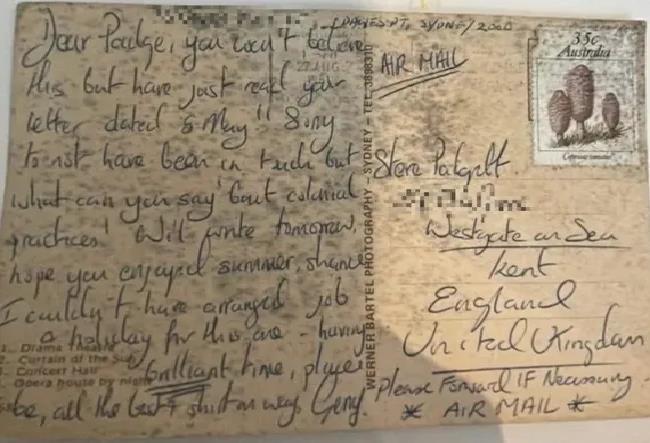 DAWES PT, SYDNEY 2000
Dear Padge, you won't believe
this but have just read your
letter dated 5 May" Sorry
to not have been in tuch but
what can you say 'bout colonial
practices! Will write tomorrow,
hope you enjoyed summer, shame
I couldn't have arranged job
& holiday for this one - having
brilliant time, player
be, all the best & shirt on way Geng.
1. Drama Theatre
2. Curtain of the Sun
3. Concert Hall
4. Opera house by night
WERNER BARTEL PHOTOGRAPHY - SYDNEY - TEL. 3898310
27 AUG
AIR MAIL
35c
Australia
Steve Padgett.
Westgate on Sea
Kent
England
United Kingdom
Please Forward IF Necessary -
* AIR MAIL *